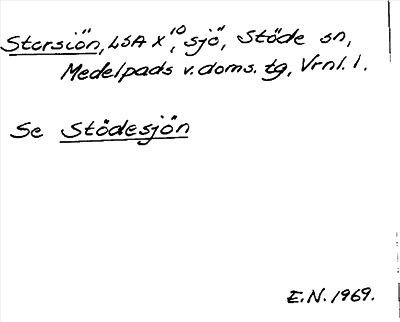 Storsiön, LSA X¹⁰, sjö, Stöde sn,
Medelpads v. doms. tg, Vrnl. 1.
Se Stödesjön
E.N. 1969.